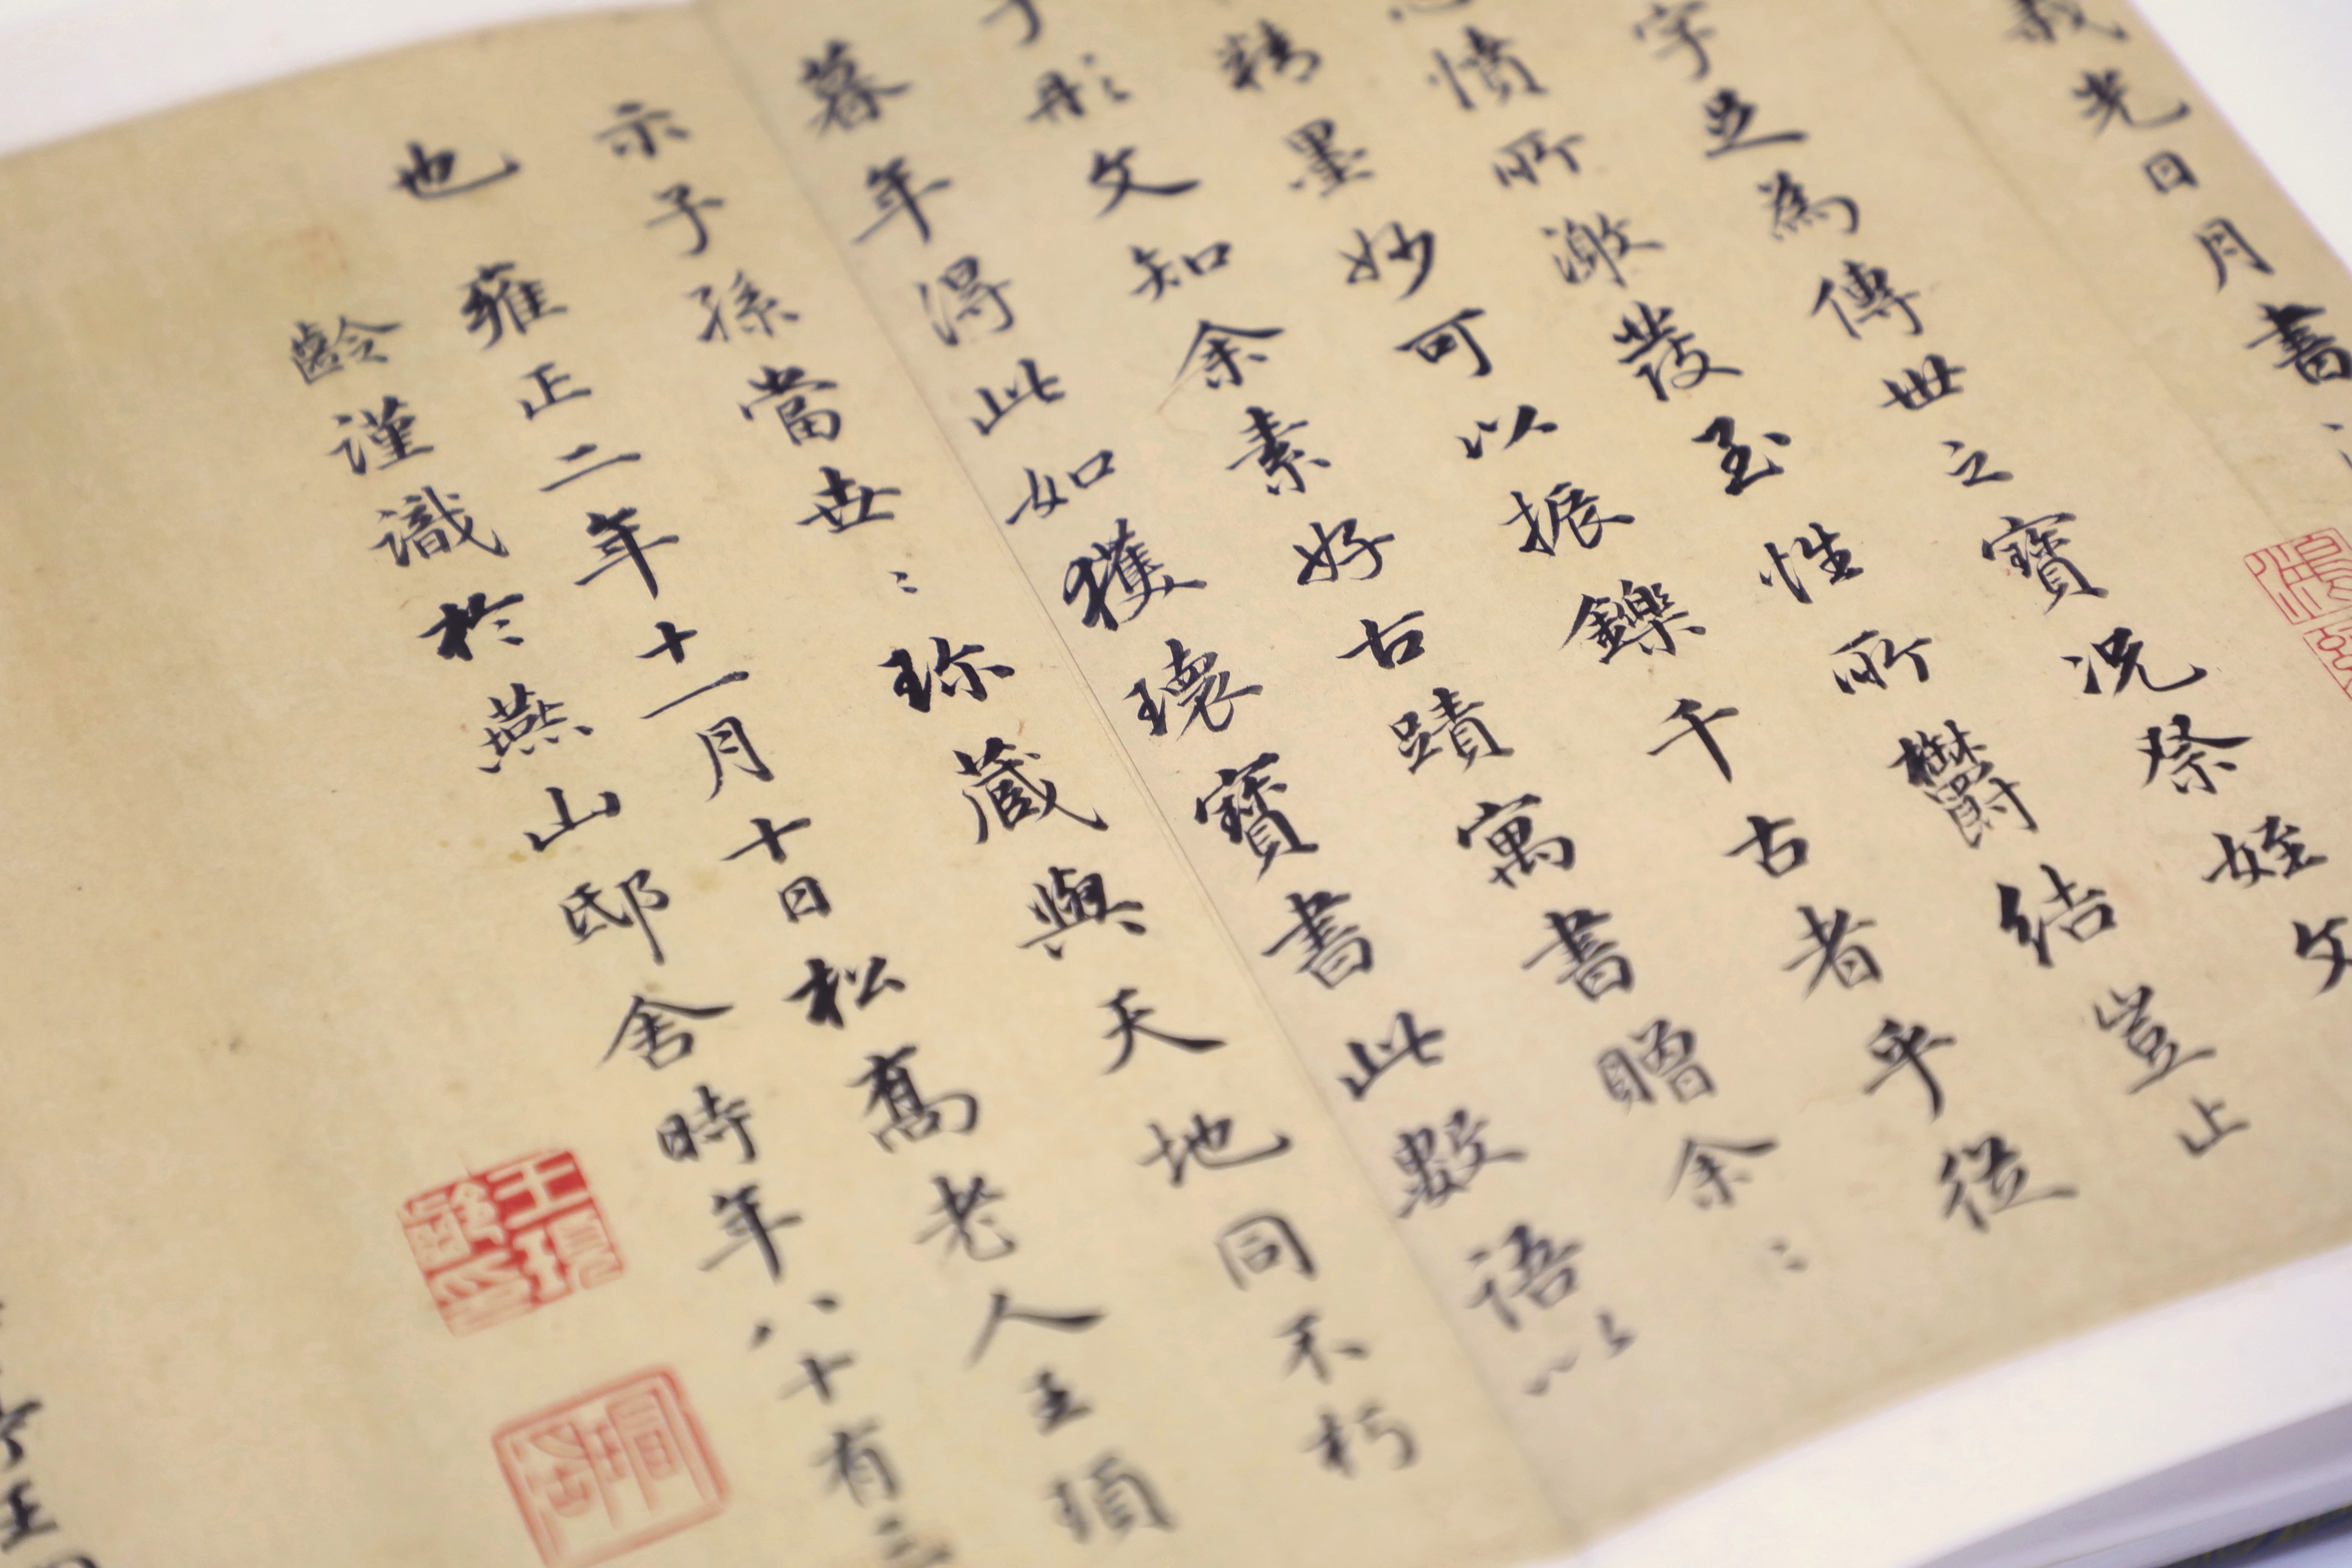 光日月書
字並為傳世之寶况祭姪文
憤所激發至性所鬱結豈止
精墨妙可以振鑠千古者乎從
彤文知余素好古蹟寓書贈余〻
暮年得此如獲瓌寶書此數語以
示子孫當世〻珍藏與天地同不朽
也 雍正二年十一月十日松喬老人王頊
齡謹識於燕山邸舍時年八十有三
王頊齡印